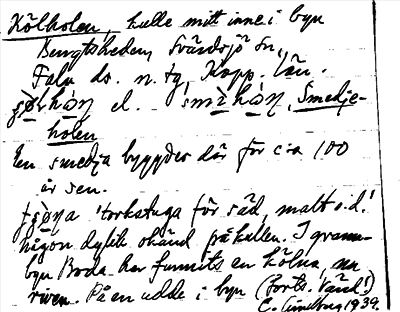 Kölholen, kulle mitt inne i byn
Bengtsheden, Svärdsjö sn,
Falu ds. n. tg, Kopp. län.
el. Smedje-
holen
En smedja byggdes där för c:a 100
år sen.
'torkstuga för säd, malt o.d.'
någon dylik okänd på kullen. I grann-
byn Boda har funnits en kölna, nu
riven. På en udde i byn (Forts. Vänd!)
C. Lindberg 1939.